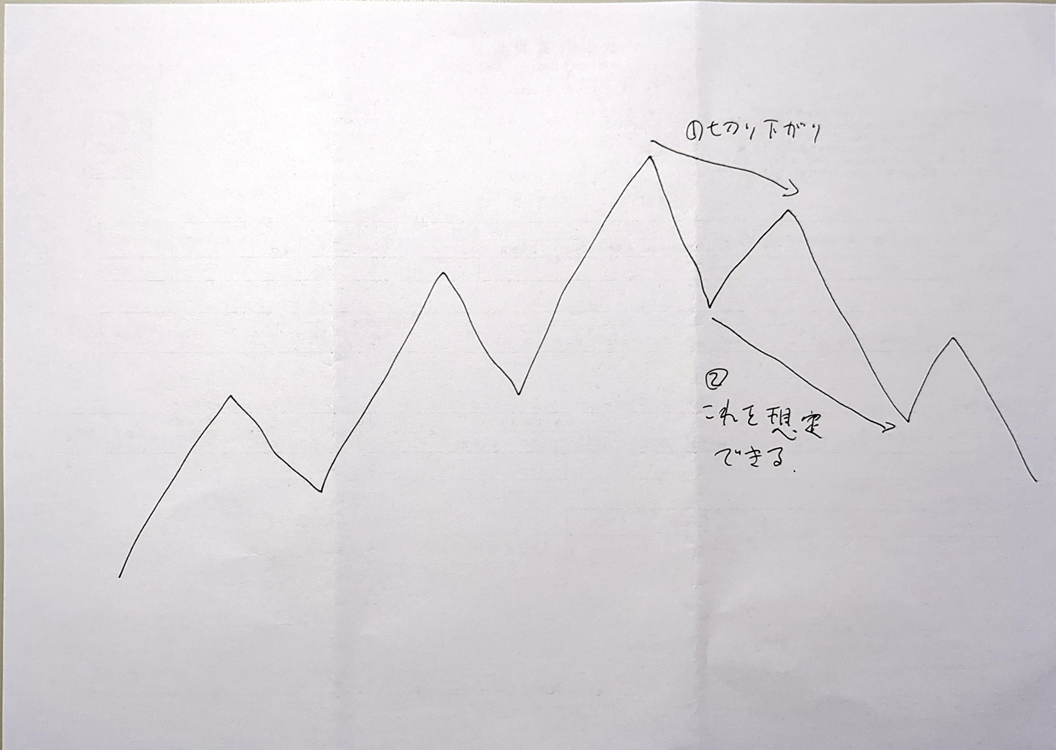 ①切り下がり
②
これを想定
できる.